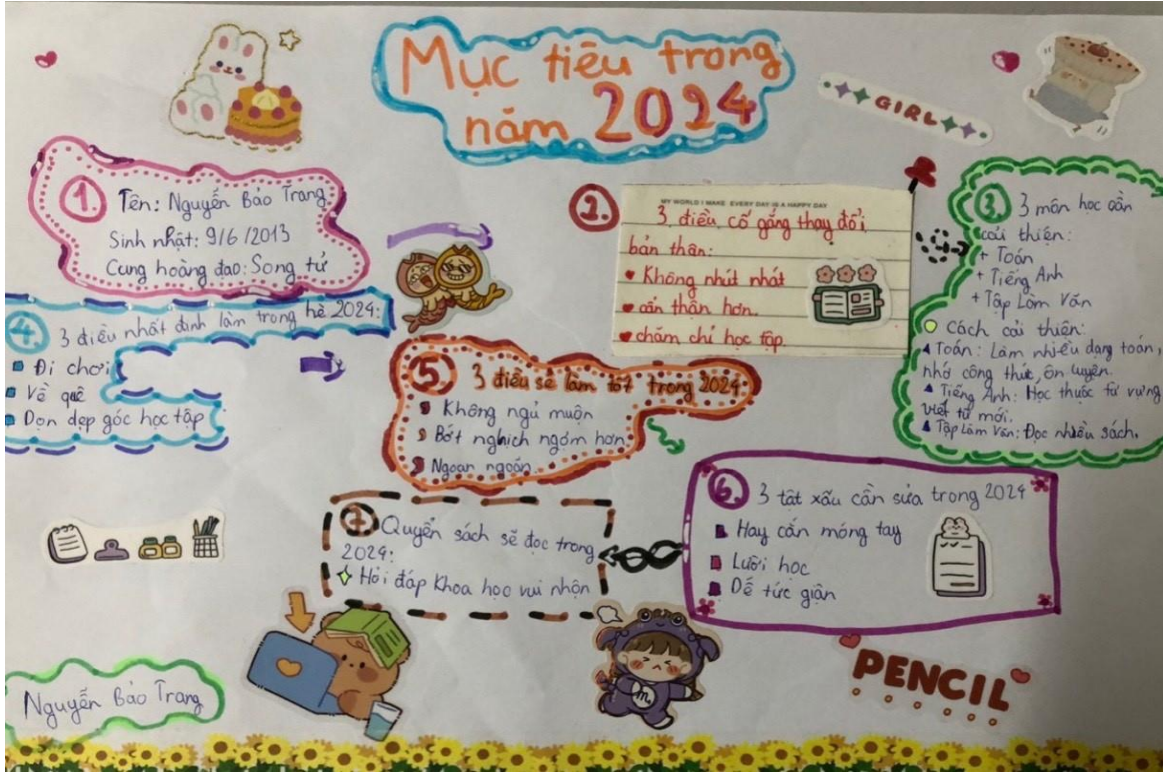 Mục tiêu trong
năm 2024
GIRL
1. Tên: Nguyễn Bảo Trang
Sinh nhật: 9/6/2013
Cung hoàng đạo: Song tử
2.
MY WORLD I MAKE EVERY DAY IS A HAPPY DAY
3 điều cố gắng thay đổi
bản thân:
Không nhút nhát
cẩn thận hơn.
chăm chỉ học tập
3. 3 môn học cần
cải thiện:
+ Toán
+ Tiếng Anh
+ Tập Làm Văn
Cách cải thiện:
Toán: Làm nhiều dạng toán,
nhớ công thức, ôn luyện.
Tiếng Anh: Học thuộc từ vựng
viết từ mới.
Tập Làm Văn: Đọc nhiều sách.
4. 3 điều nhất định làm trong hè 2024:
Đi chơi
Về quê
Dọn dẹp góc học tập
5 3 điều sẽ làm tốt trong 2024:
Không ngủ muộn
Bớt nghịch ngợm hơn
Ngoan ngoãn.
6. 3 tật xấu cần sửa trong 2024
Hay cắn móng tay
Lười học
Dễ tức giận
7. Quyển sách sẽ đọc trong
2024:
Hỏi đáp Khoa học vui nhộn
PENCIL
Nguyễn Bảo Trang